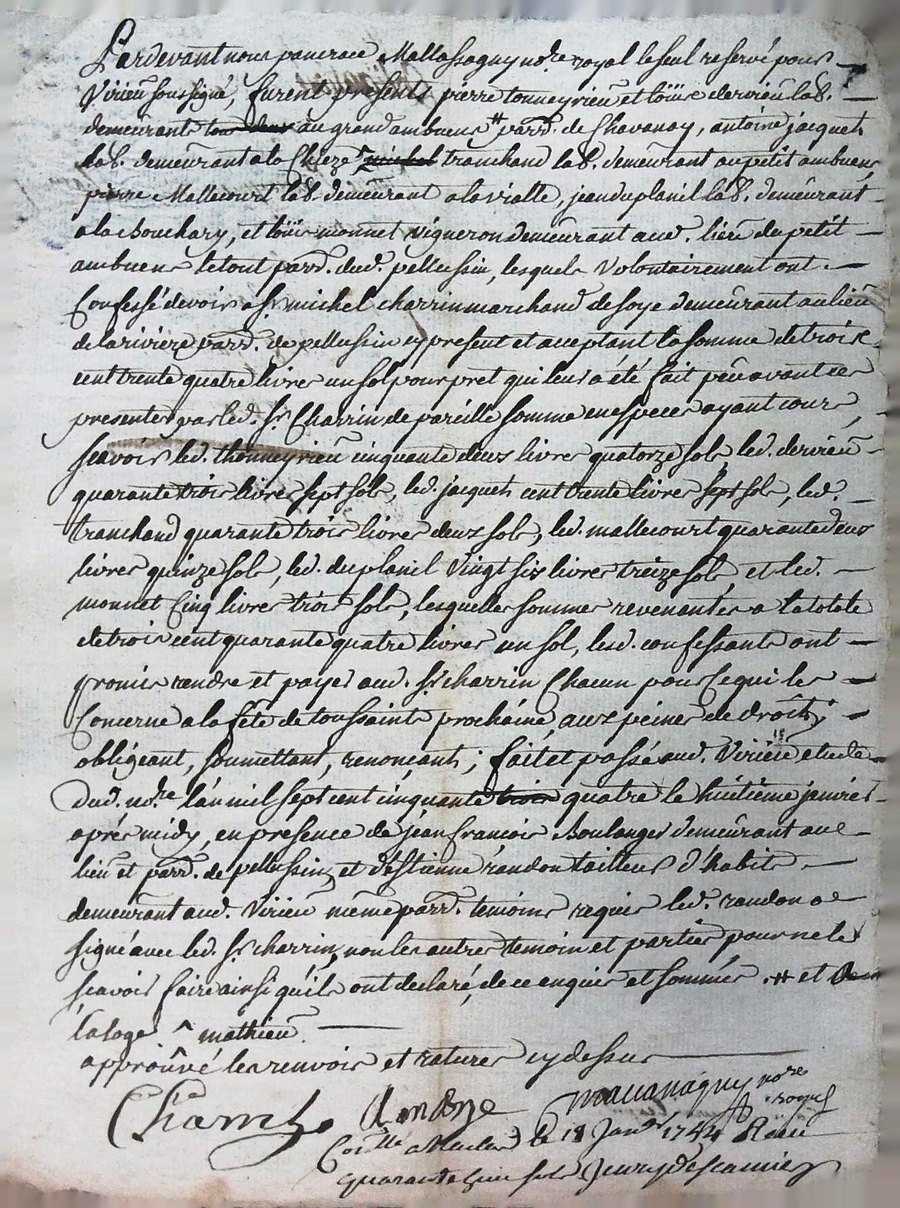 Pardevant nous pancrace Mallassagny no.re royal le seul reservé pour
Virieu soussigné, furent presents pierre tonneyrieu et loüis dervieu lab.
demeurants au grand ambuens # parr. de Chavanay, antoine jacquet
lab. demeurant a la Chieze ^ tranchand lab. demeurant au petit ambuens,
pierre Mallecourt lab. demeurant a la vialle, jean du planil lab. demeurant
a la Bouchary, et loüis monnet vigneron demeurant aud. lieu du petit
ambuens le tout parr. dud. pellussin, lesquels volontairement ont
Confessé devoir a Sr. michel charrin marchand de soye demeurant au lieu
de la riviere parr. de pellussin cy present et acceptant la somme de trois
cent trente quatre livres un sol pour pret qui leur a été fait peu avant ces
presentes par led. Sr. Charrin de pareille somme en especes ayant cours,
scavoir led. thonneyrieu cinquante deux livres quatorze sols led. dervieu
quarante trois livres sept sols, led. jacquet cent trente livres sept sols, led.
tranchand quarante trois livres deux sols, led. mallecourt quarante deux
livres quinze sols, led. du planil vingt six livres treize sols et led.
monnet Cinq livres trois sols, lesquelles sommes revenantes a la totale
de trois cent quarante quatre livres un sol, lesd. confessants ont
promis rendre et payer aud. Sr. charrin Chacun pour ce qui les
Concerne a la fête de toussaints prochaine, aux peines de droit,
obligeant, soumettant, renonçants; fait et passé aud. Virieu etude
dud. no.re l'an mil sept cent cinquante trois quatre le huitième janvier
après midy, en presence de jean francois Boulanger demeurant au
lieu et parr. de pellussin, et d'estienne randon tailleur d'habits
demeurant aud. Virieu même parr. temoins requis led. randon a
signé avec led. Sr. charrin, non les autres temoin et parties pour ne le
scavoir faire ainsi qu'ils ont declaré, de ce enquis et sommés .# et
la loge ^ mathieu.
approuvé les renvois et ratures cy dessus
Charrin Randon Mallassagny no.re royal
Con.lle a le 18 Janv. Reçu
quarante sols